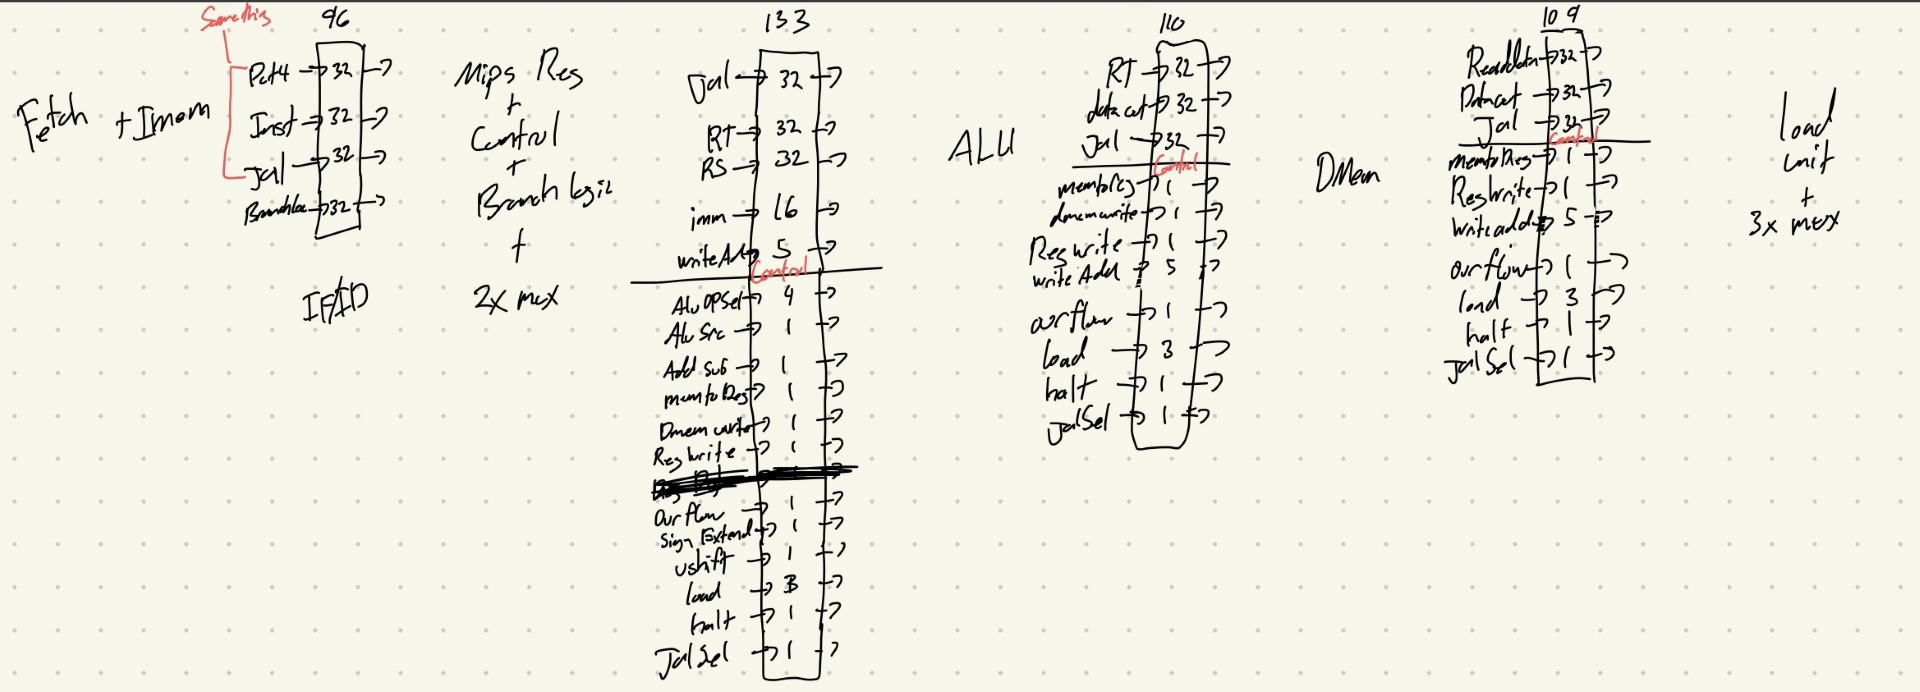 Something
96
Pct4 32
Fetch + Imem
Inst 32
Jal 32
Branchloc 32
IF/ID
Mips Reg
+
Control
+
Branch logic
+
2x mux
133
Jal 32
RT 32
RS 32
imm 16
writeAdd 5
Control
Alu OPSel 4
Alu Src 1
Add sub 1
memtoReg 1
Dmem write 1
Reg Write 1
Ovrflow 1
Sign Extend 1
ushift 1
load 3
halt 1
JalSel 1
ALU
110
RT 32
data out 32
Jal 32
Control
memtoReg 1
dmemwrite 1
Reg write 1
write Add 5
ovrflow 1
load 3
halt 1
JalSel 1
DMem
109
Readdata 32
Dataout 32
Jal 32
Control
memtoReg 1
RegWrite 1
writeadd 5
ovrflow 1
load 3
halt 1
JalSel 1
load
unit
+
3x mux